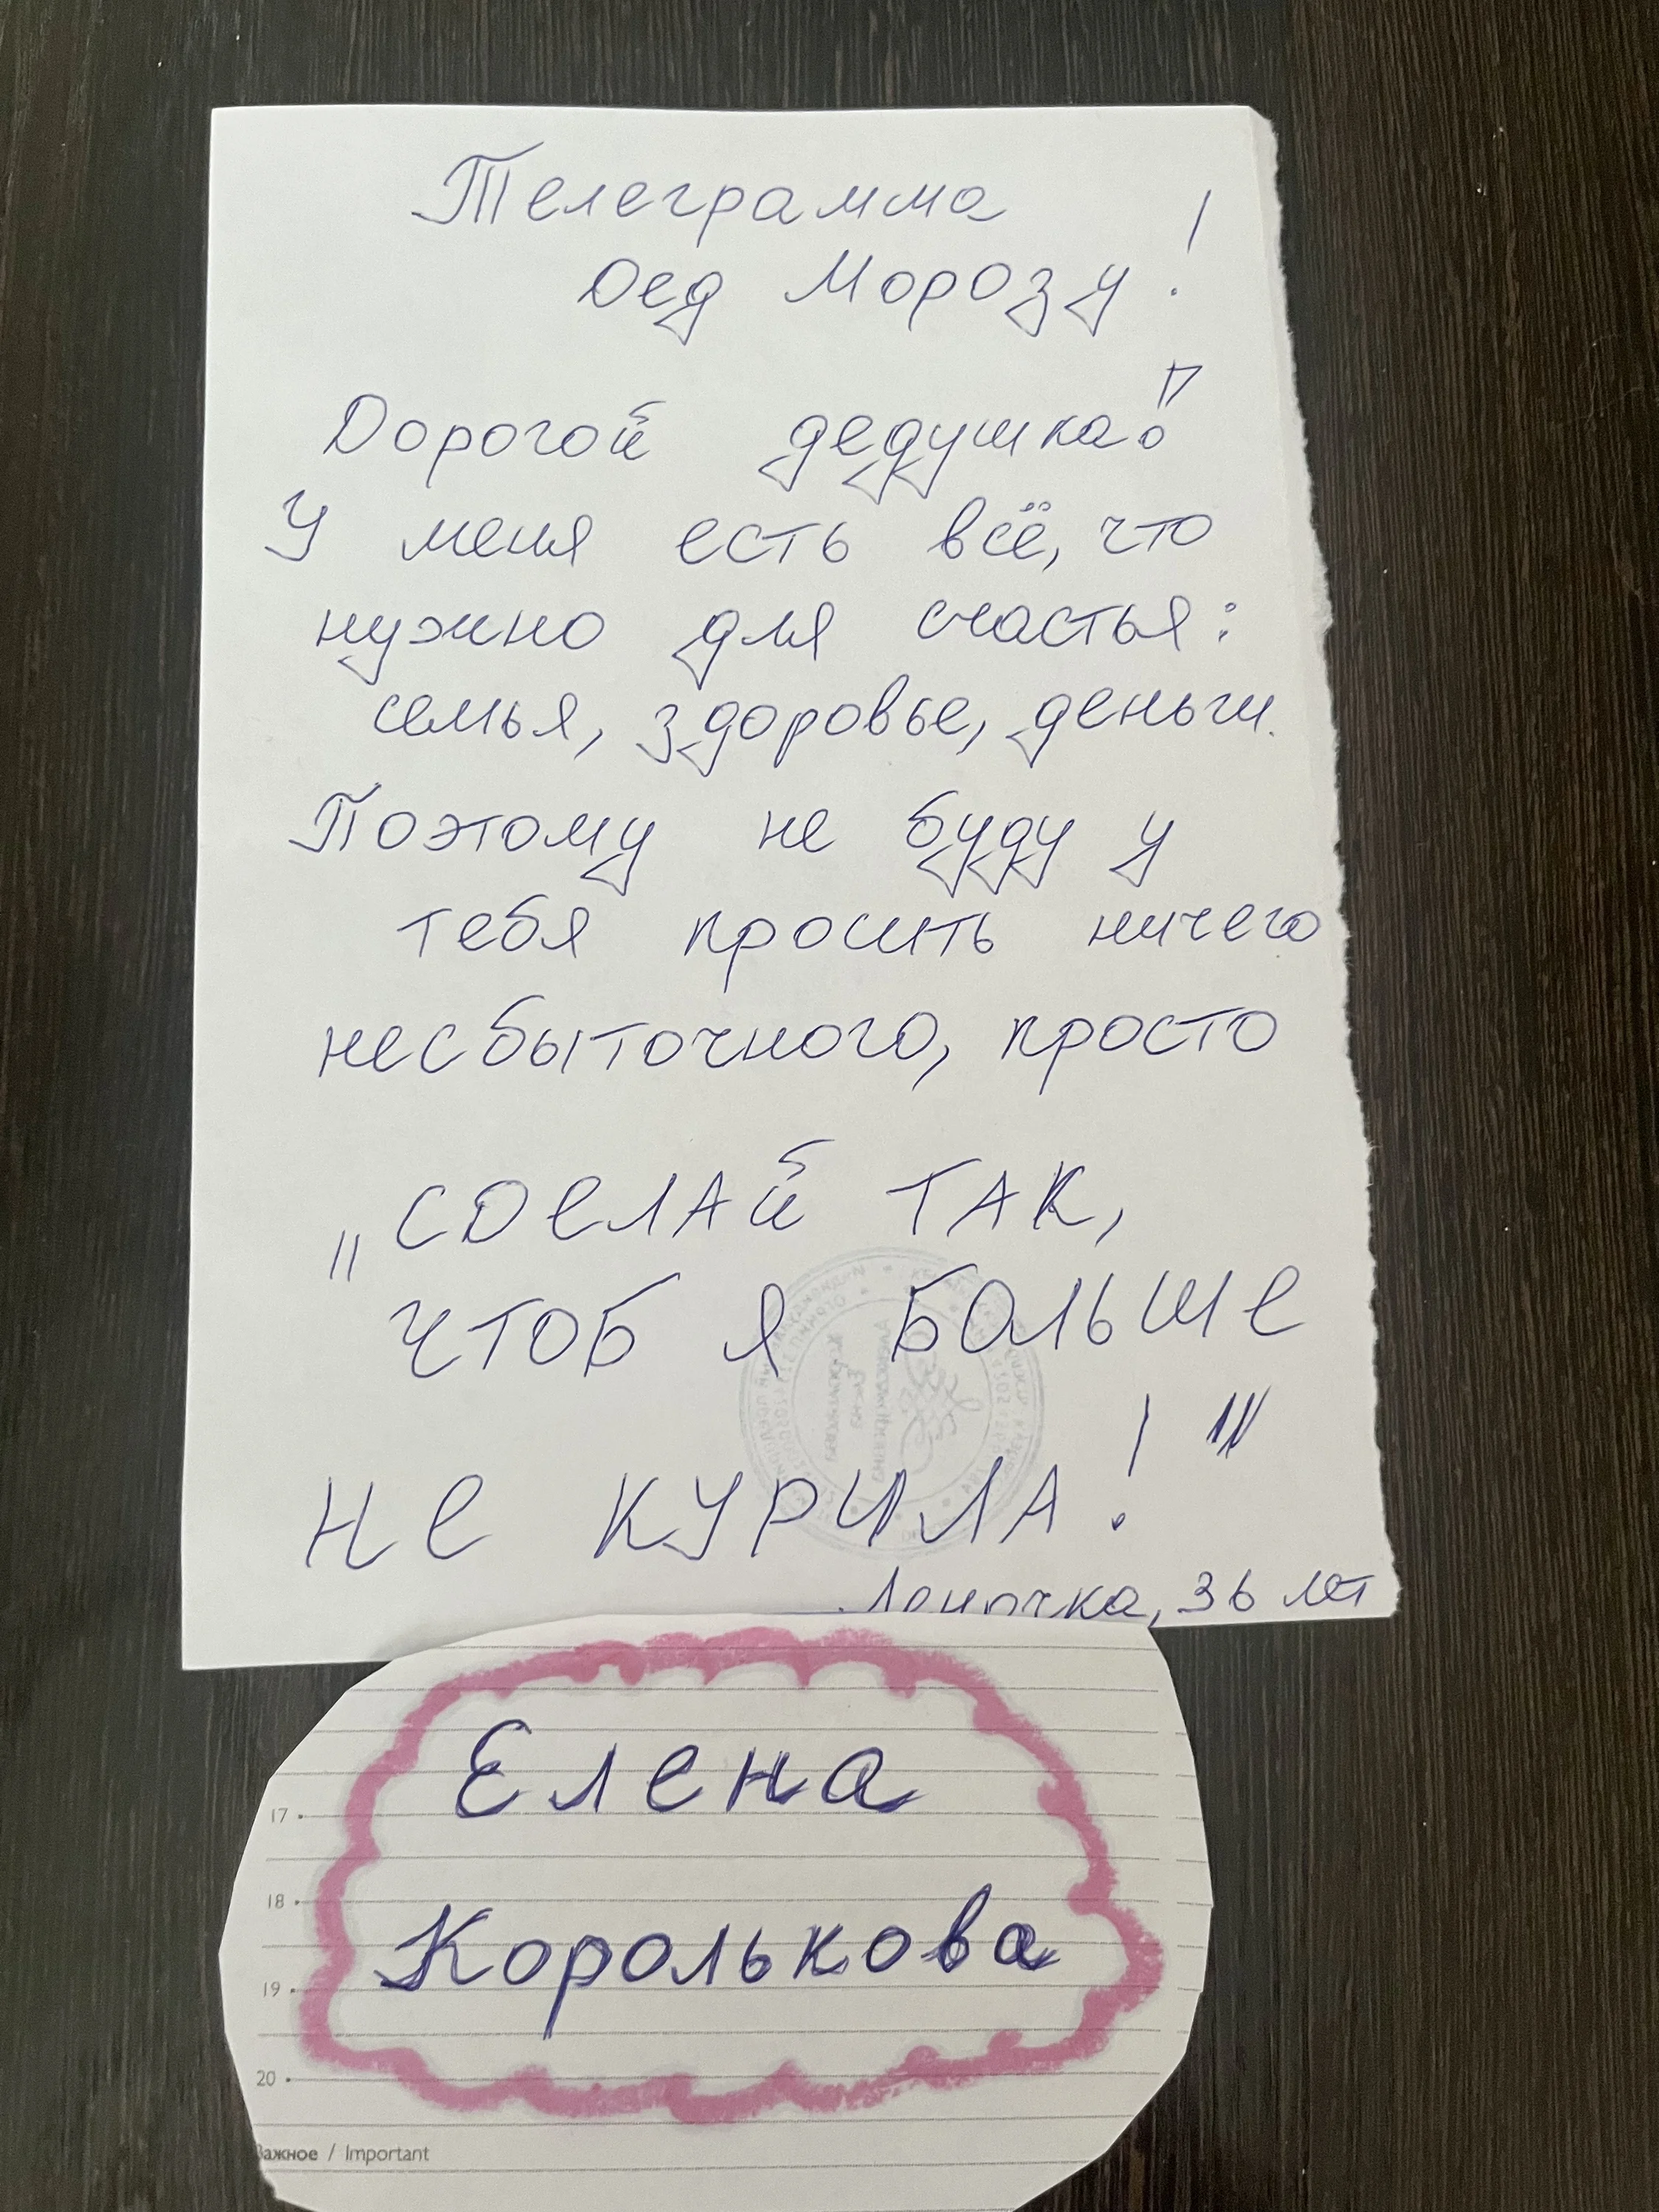 Телеграмма
Дед Морозу!
Дорогой дедушка!
У меня есть всё, что
нужно для счастья:
семья, здоровье, деньги.
Поэтому не буду у
тебя просить ничего
несбыточного, просто
„СДЕЛАЙ ТАК,
ЧТОБ Я БОЛЬШЕ
НЕ КУРИЛА!"
Леночка, 36 лет
Елена
Королькова
17
18
19
20
Важное / Important